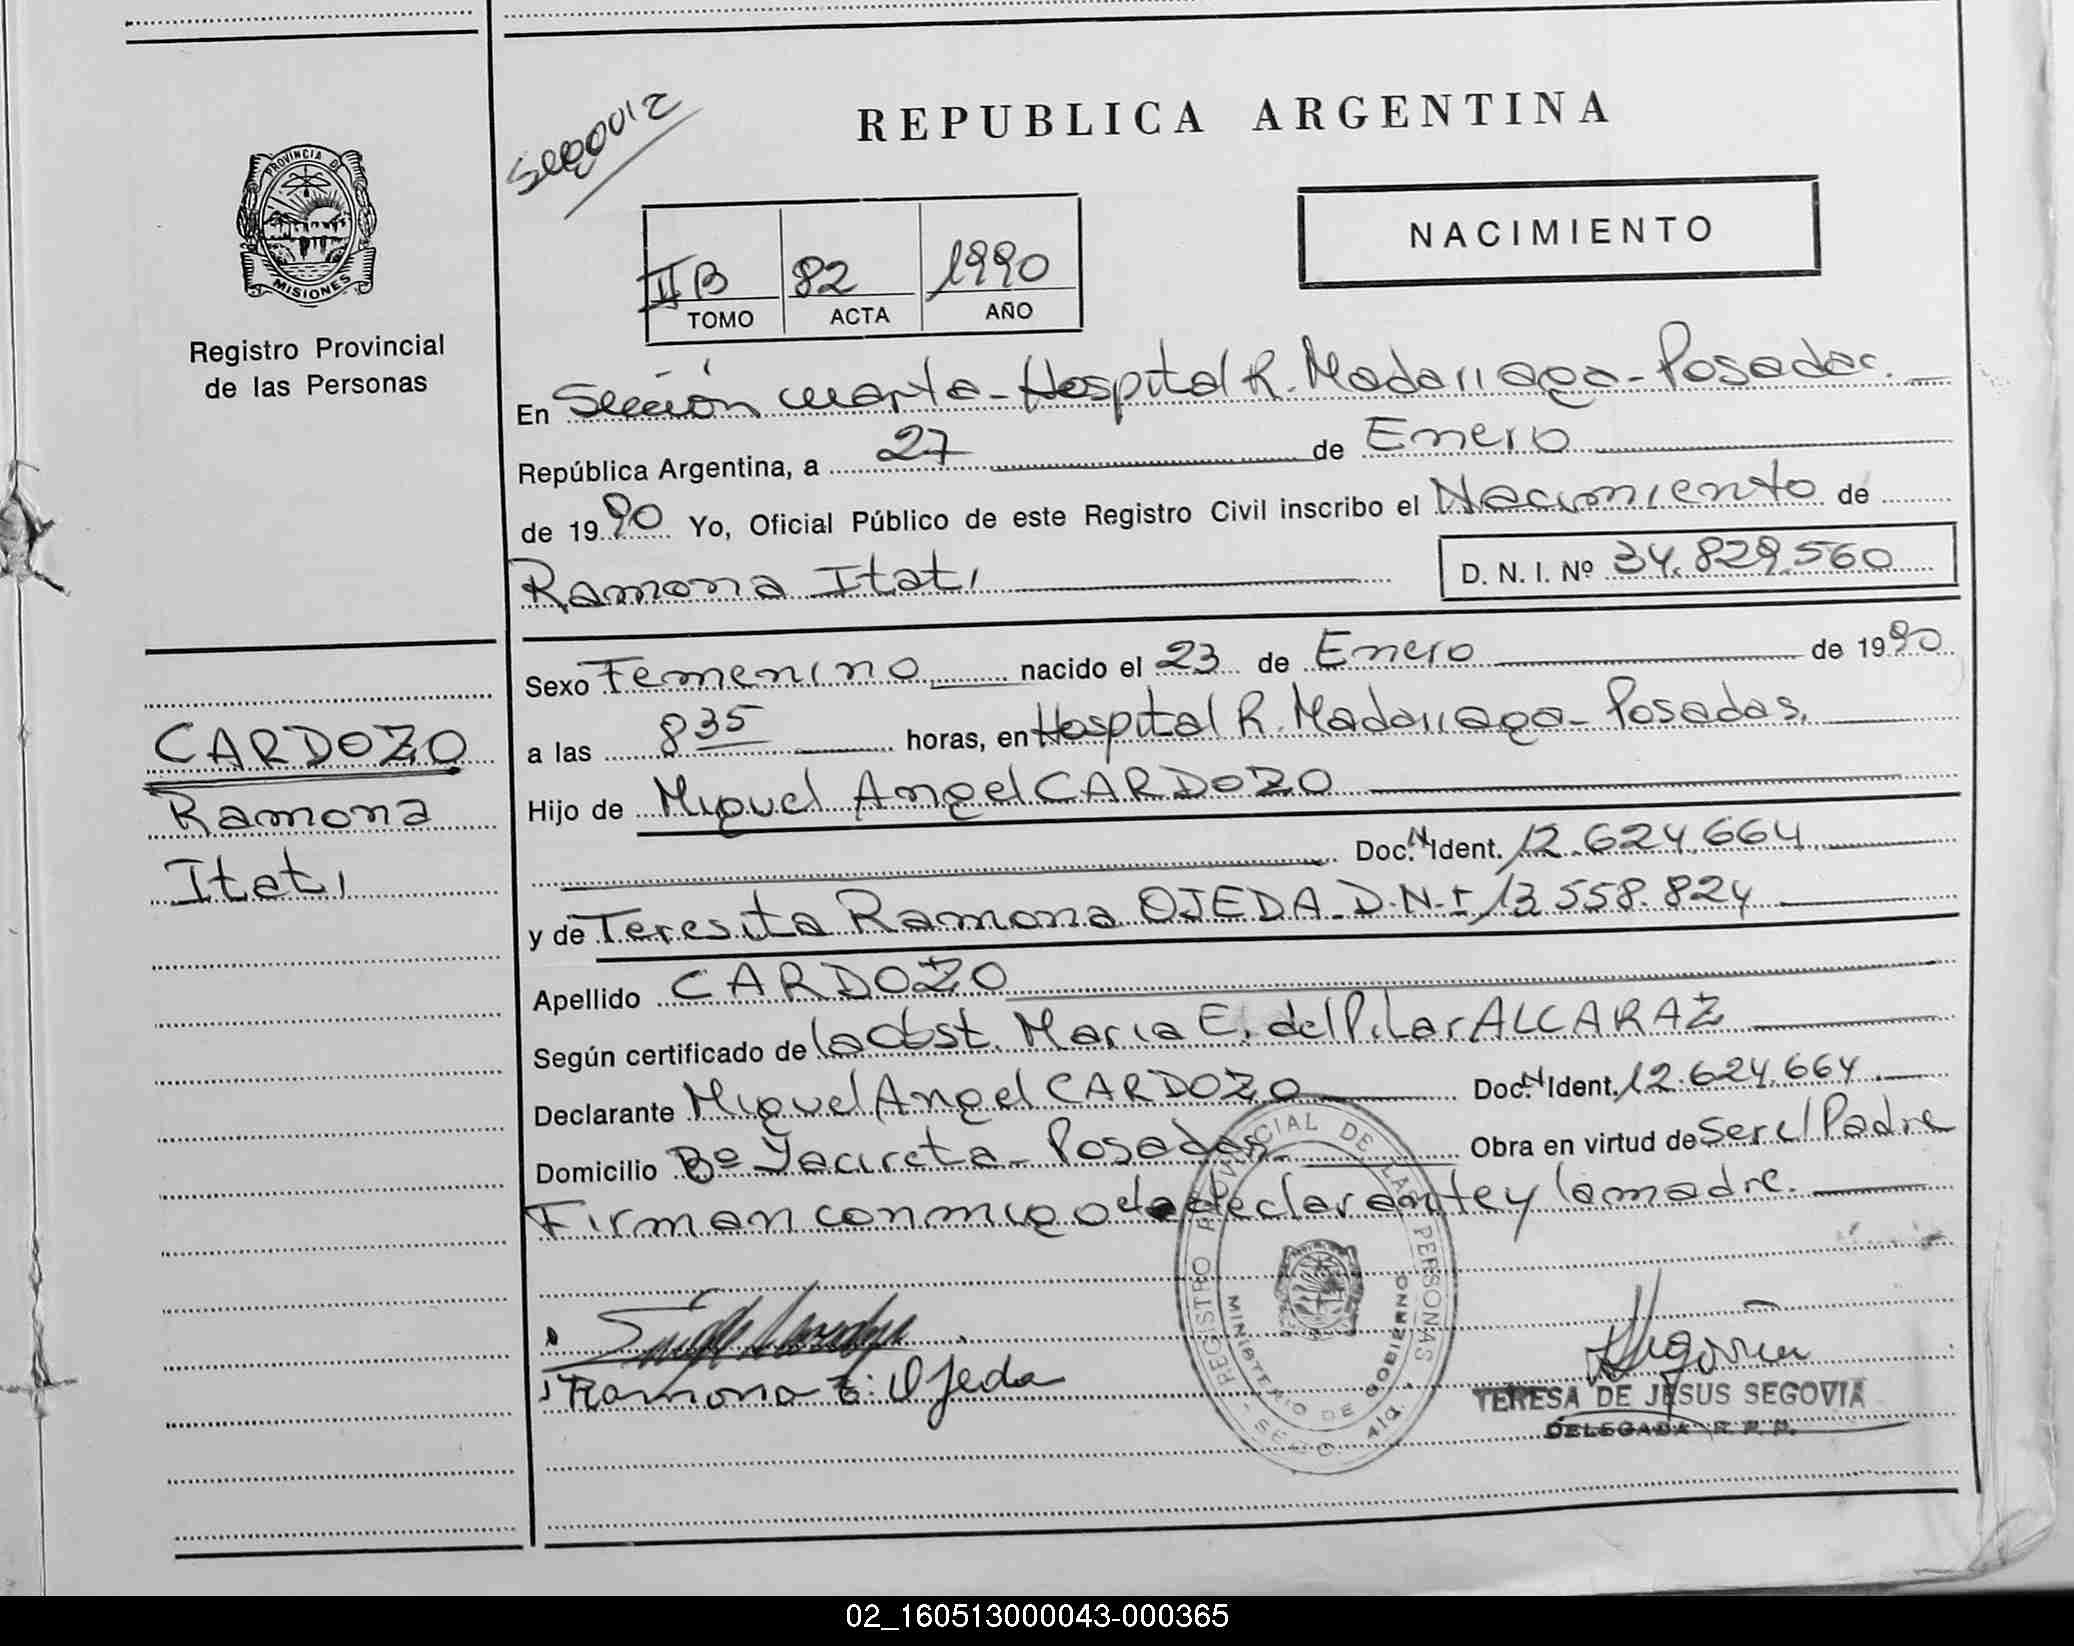 REPUBLICA ARGENTINA
Segovia
NACIMIENTO
PROVINCIA DE
MISIONES
Registro Provincial
de las Personas
II B 82 1990
TOMO ACTA AÑO
En Sección cuarta - Hospital R. Madariaga - Posadas.
República Argentina, a 27 de Enero
de 1990 Yo, Oficial Público de este Registro Civil inscribo el Nacimiento de
Ramona Itatí D. N. I. Nº 34.829.560
Sexo Femenino nacido el 23 de Enero de 1990
a las 8 35 horas, en Hospital R. Madariaga - Posadas.
Hijo de Miguel Angel CARDOZO
Doc. N. Ident. 12.624.664
y de Teresita Ramona OJEDA - D.N.I 13.558.824
Apellido CARDOZO
Según certificado de la Obst. Maria E. del Pilar ALCARAZ
Declarante Miguel Angel CARDOZO Doc. N Ident. 12.624.664
Domicilio Bº Yacireta - Posadas - Obra en virtud de Ser el Padre
Firman conmigo el declarante y la madre.
CARDOZO
Ramona
Itatí
REGISTRO PROVINCIAL DE LAS PERSONAS
MINISTERIO DE GOBIERNO
Ramona T. Ojeda
Segovia
TERESA DE JESUS SEGOVIA
DELEGADA R. P. P.
02_160513000043-000365